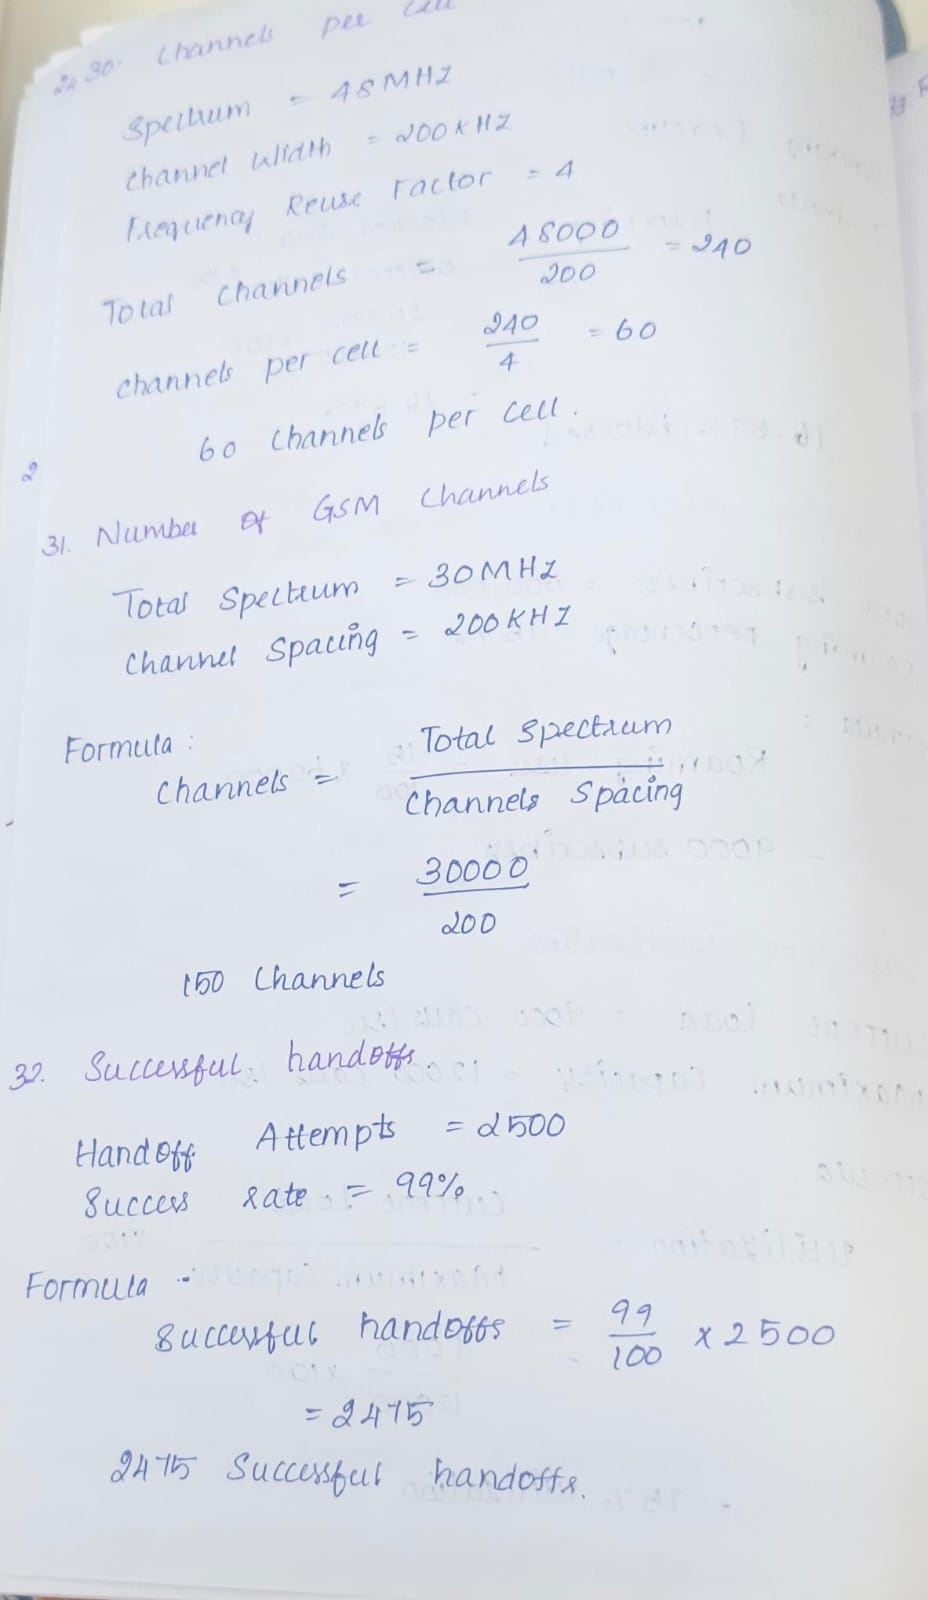 30. Channels per cell
Spectrum = 48 MHZ
Channel Width = 200 KHZ
Frequency Reuse Factor = 4
Total Channels = 48000 / 200 = 240
Channels per cell = 240 / 4 = 60
60 Channels per cell.
2
31. Number of GSM Channels
Total Spectrum = 30 MHZ
Channel Spacing = 200 KHZ
Formula :
Channels = Total Spectrum / Channels Spacing
= 30000 / 200
150 Channels
32. Successful handoffs
Handoff Attempts = 2500
Success rate = 99%
Formula :-
Successful handoffs = 99 / 100 x 2500
= 2475
2475 Successful handoffs.
33.